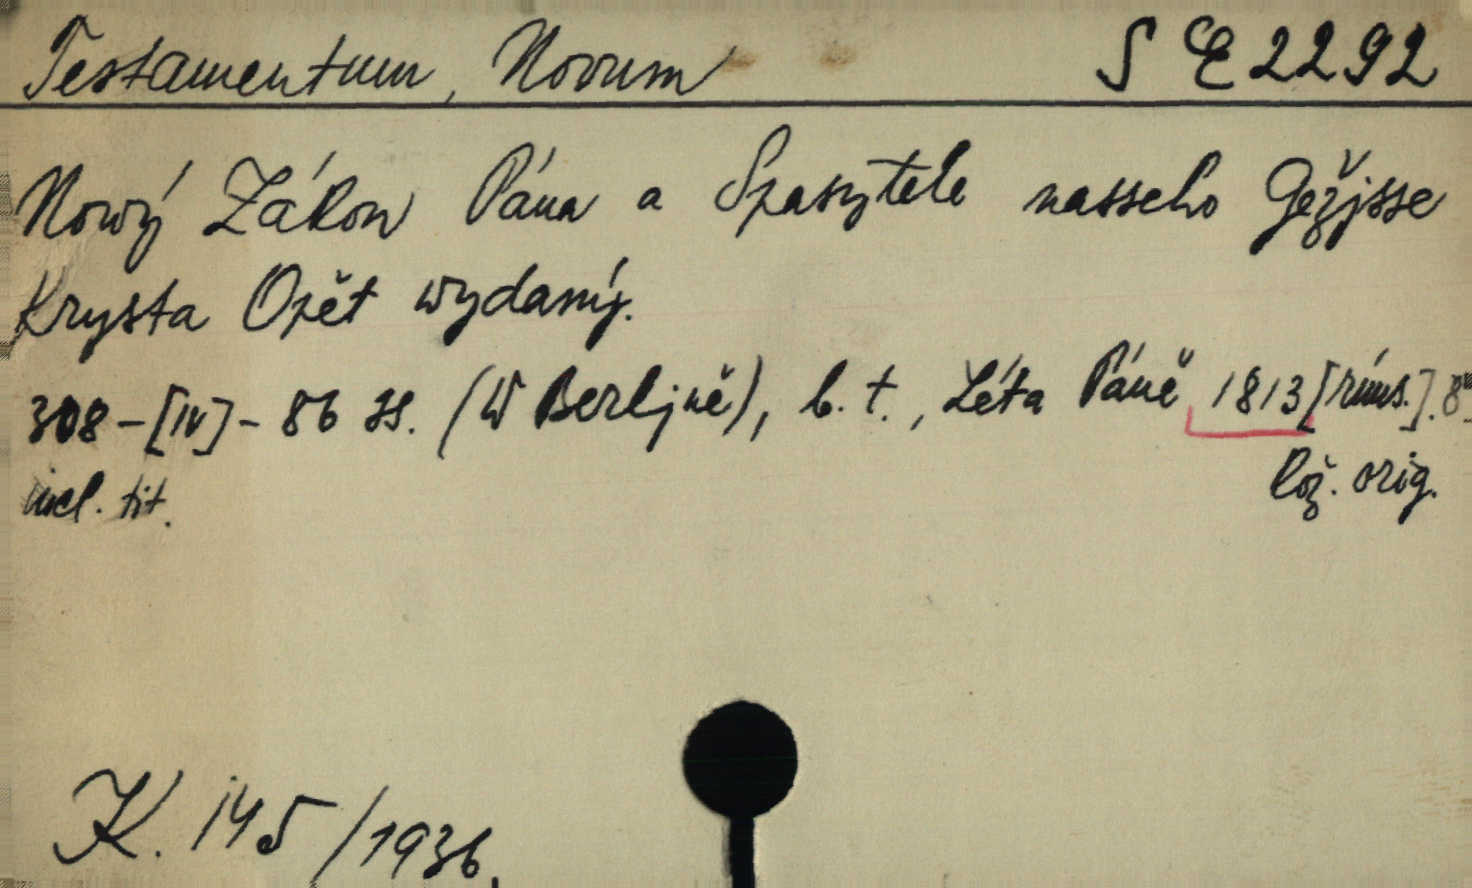 Testamentum, Novum S E 2292
Nowý Zákon Pána a Spasytele nasseho Gežjsse
Krysta Opět wydaný.
308-[IV]-86 ss. (W Berljně), b. t., Léta Páně 1813[říms.]. 8°
incl. tit. kož. orig.
K. 145/1936.